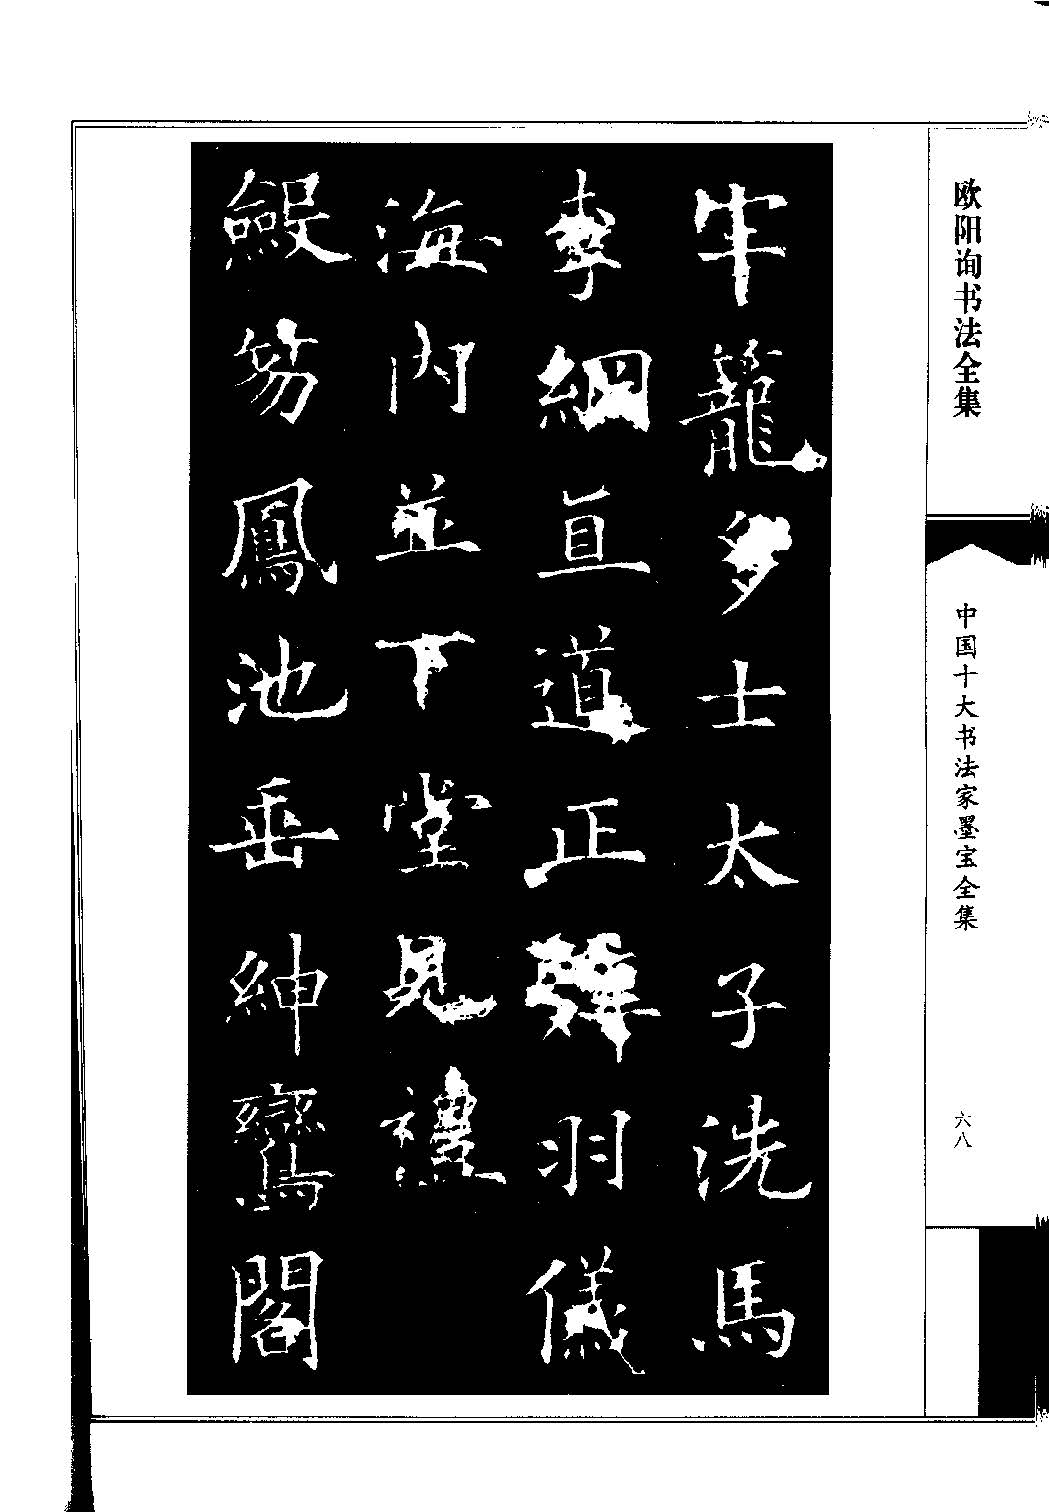 欧阳询书法全集
中国十大书法家墨宝全集
六八
牢籠多士太子洗馬
李綱直道正辭羽儀
海內並下堂見禮
斂笏鳳池垂紳鸞閣